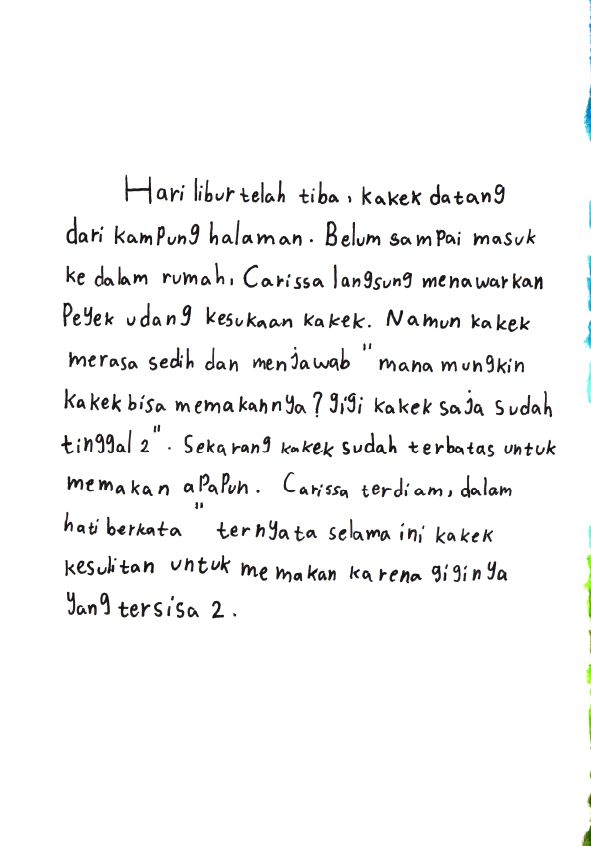 Hari libur telah tiba, kakek datang
dari kampung halaman. Belum sampai masuk
ke dalam rumah, Carissa langsung menawarkan
Peyek udang kesukaan kakek. Namun kakek
merasa sedih dan menjawab "mana mungkin
kakek bisa memakannya? gigi kakek saja sudah
tinggal 2". Sekarang kakek sudah terbatas untuk
memakan apapun. Carissa terdiam, dalam
hati berkata " ternyata selama ini kakek
kesulitan untuk memakan karena giginya
yang tersisa 2.